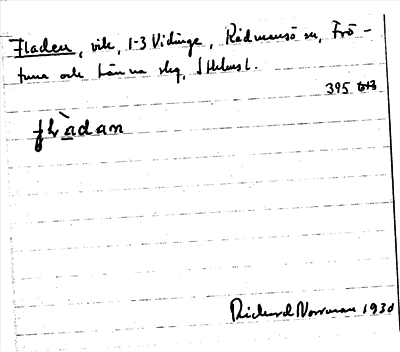 Fladen, vik, 1-3 Vidinge, Rådmansö sn, Frö-
tuna och Länna skg, Sthlms l.
395
flàdan
Richard Norrman 1930